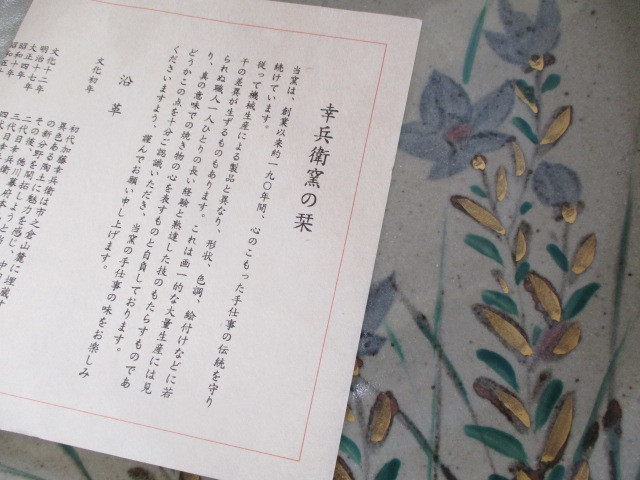 幸兵衛窯の栞
当窯は、創業以来約一九〇年間、心のこもった手仕事の伝統を守り
続けています。
従って機械生産による製品と異なり、形状、色調、絵付けなどに若
干の差異が生ずるものもあります。これは画一的な大量生産には見
られぬ職人一人ひとりの長い経験と熟達した技のもたらすものであ
り、真の意味での焼き物の心を表すものと自負しております。
どうかこの点を十分ご認識いただき、当窯の手仕事の味をお楽しみ
くださいますよう、謹んでお願い申し上げます。
沿革
文化初年
初代加藤幸兵衛は市之倉山麓に埋蔵す
異色ある陶土に魅力を感じ、
の新分野を開拓しようと
文化十二年
明治十
大正十七年
昭和四年
昭和十年